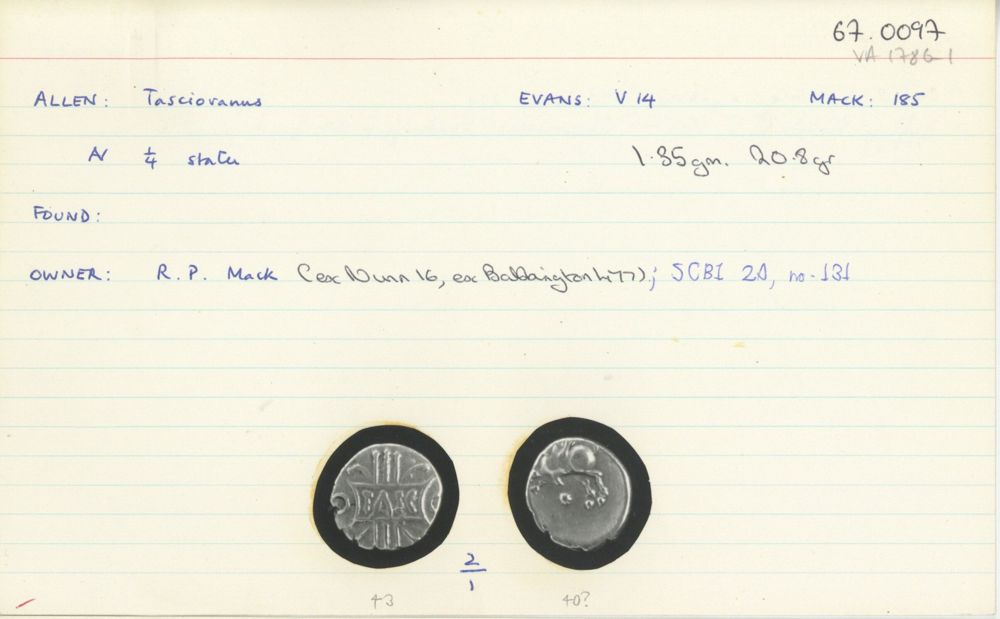 67.0097
VA 1786-1
ALLEN: Tasciovanus EVANS: V 14 MACK: 185
AV ¼ stater 1.35gm. 20.8gr
FOUND:
OWNER: R.P. Mack (ex Nunn 16, ex Babbington 477); SCBI 20, no. 131
TASC
2/1
43 40?